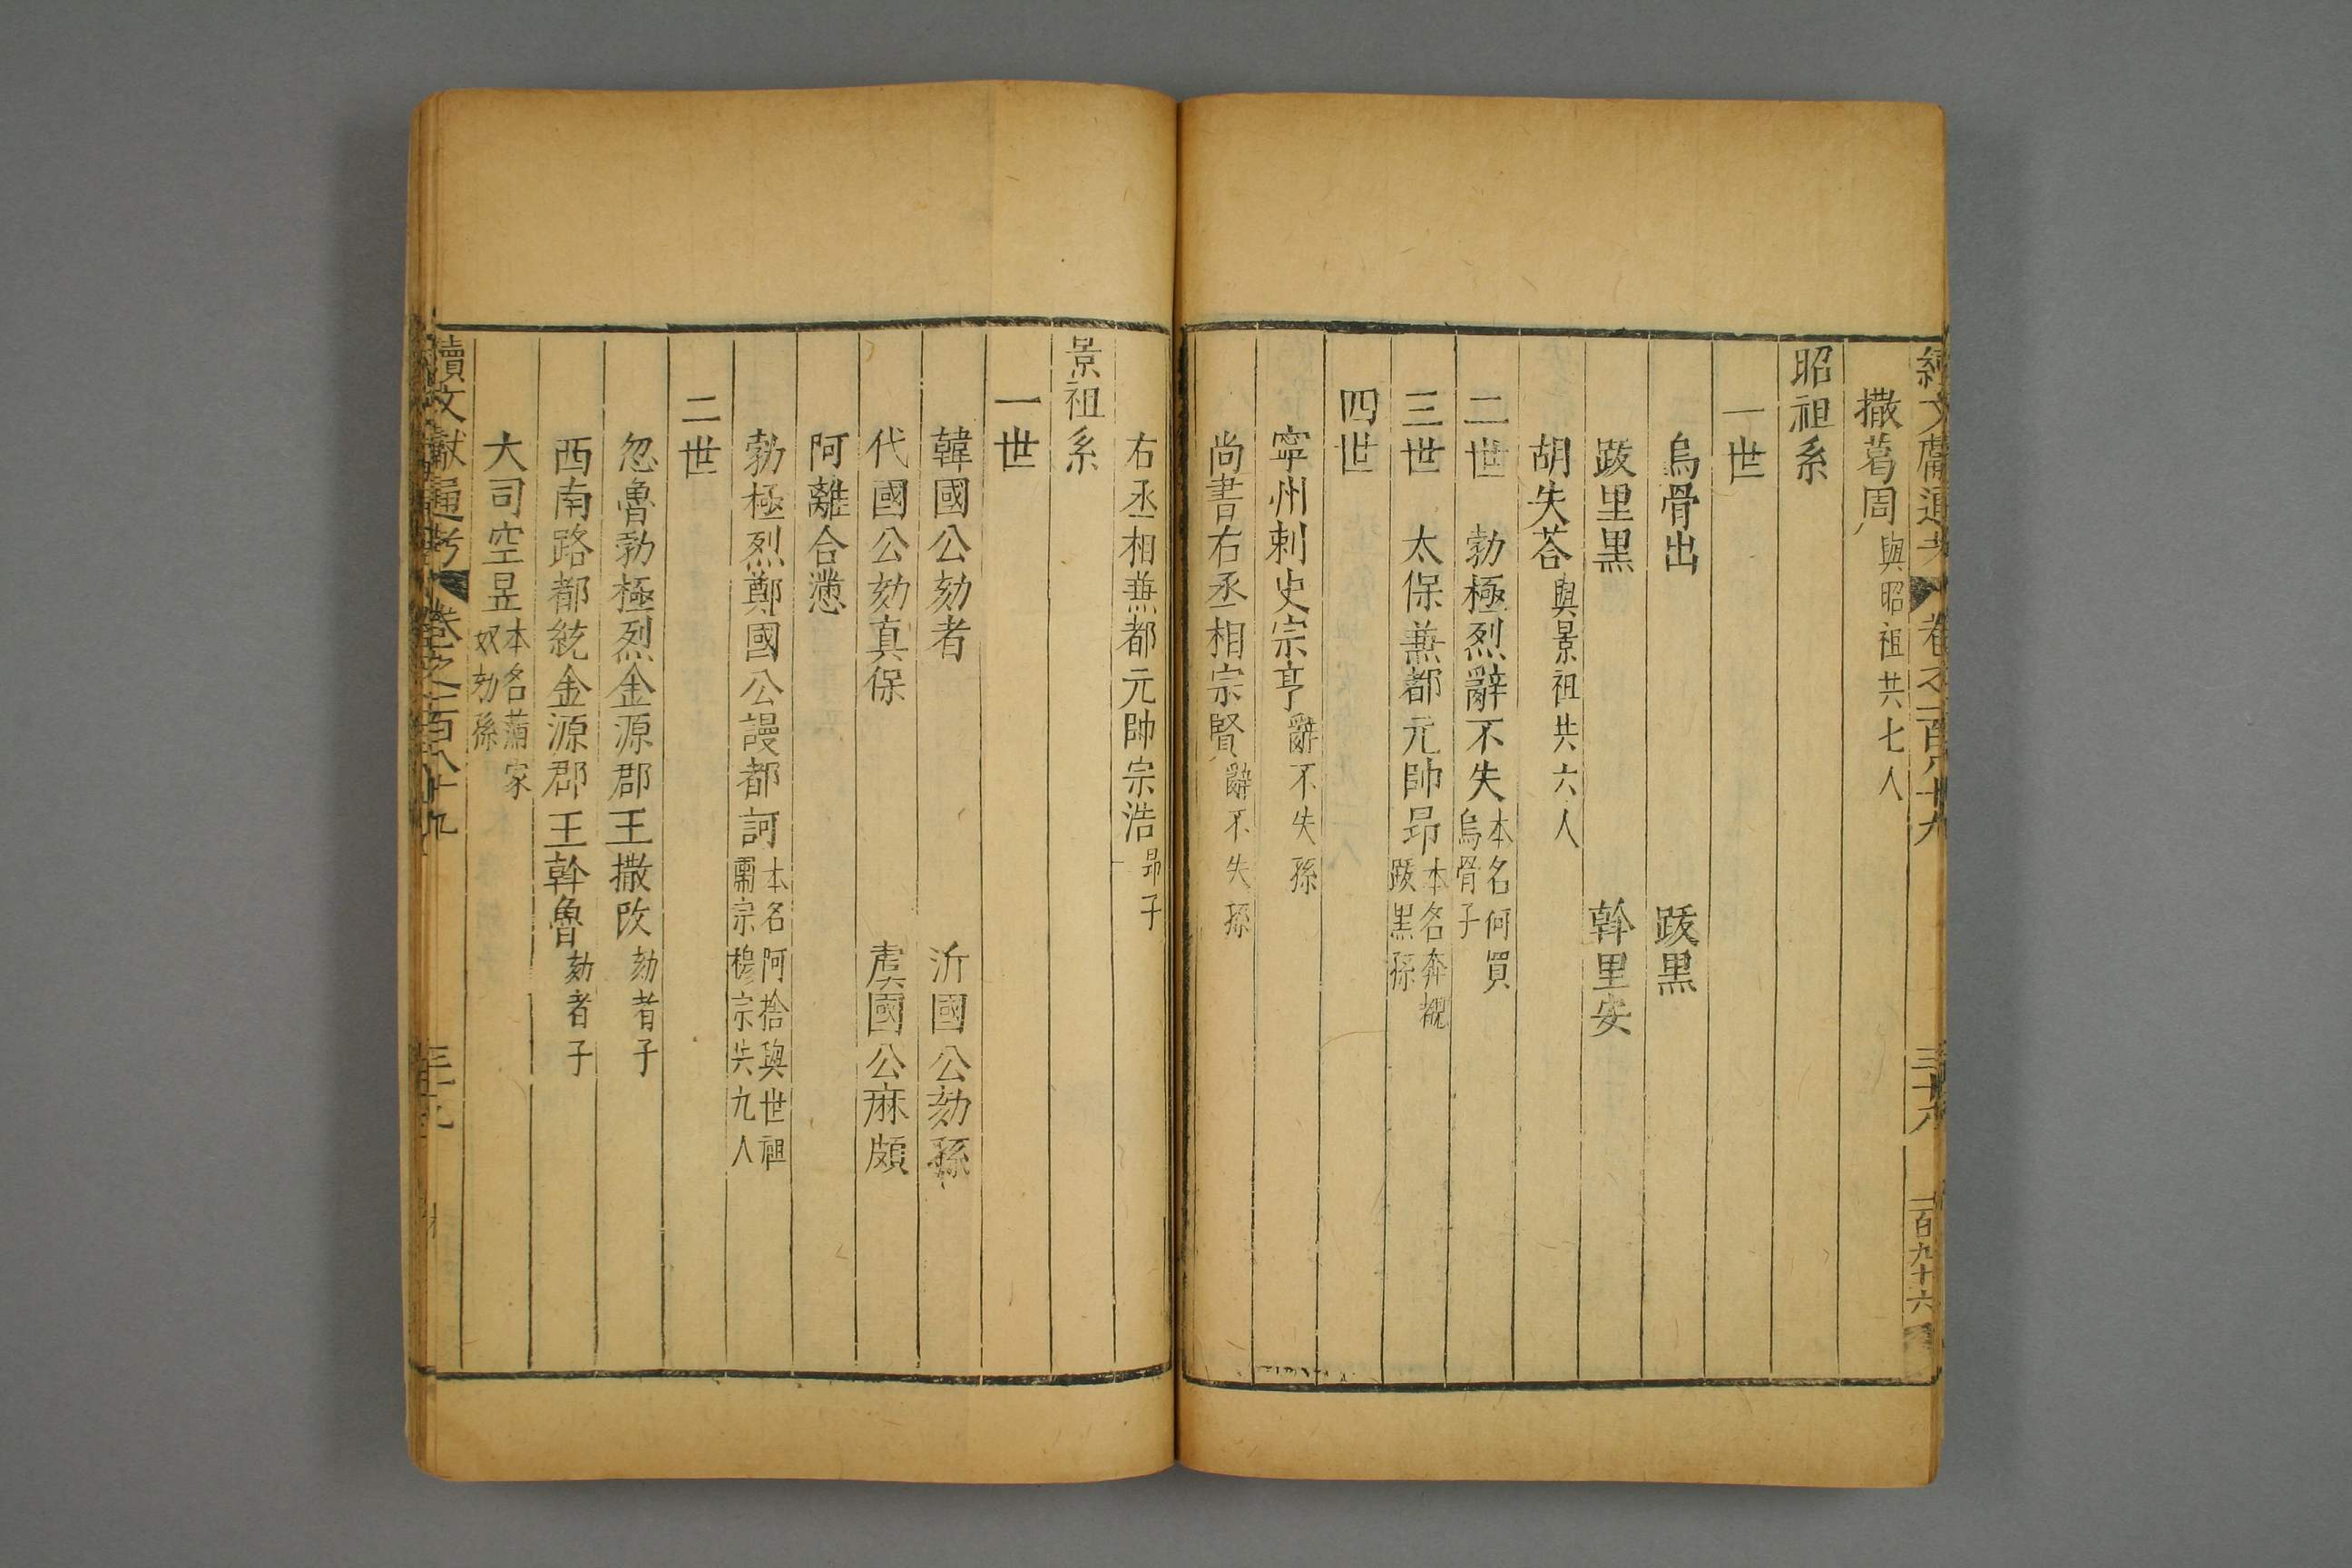 續文獻通考 卷之二百八十九 三十六 一百九十六
撒葛周 與昭祖共七人
昭祖系
一世
烏骨出 跋黑
跋里黑 斡里安
胡失荅 與景祖共六人
二世 勃極烈辭不失 本名何買烏骨子
三世 太保兼都元帥昂 本名奔櫬跋黑孫
四世
寧州刺史宗亨 辭不失孫
尚書右丞相宗賢 辭不失孫
右丞相兼都元帥宗浩 昂子
景祖系
一世
韓國公劾者 沂國公劾孫
代國公劾真保 虞國公麻頗
阿離合懣
勃極烈鄭國公謾都訶 本名阿捨與世祖肅宗穆宗共九人
二世
忽魯勃極烈金源郡王撒改 劾者子
西南路都統金源郡王斡魯 劾者子
大司空昱 本名蒲家奴劾孫
續文獻通考 卷之二百八十九